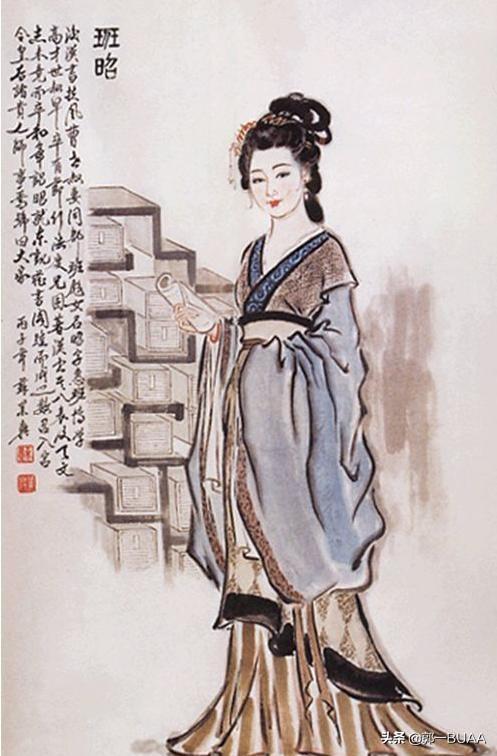 班昭
後漢書扶風曹世叔妻同郡班彪女名昭字惠班博學
高才世叔早卒有節行法度兄固著漢書其八表及天文
志未竟而卒和帝詔昭就東觀藏書閣踵而成之數召入宮
令皇后諸貴人師事焉號曰大家 丙子年
头条 @郭一BUAA